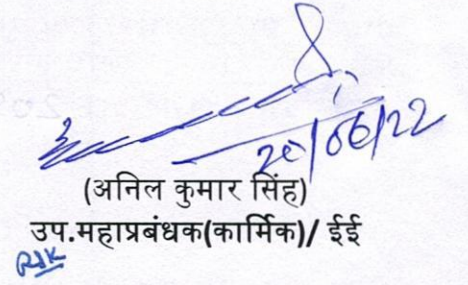 20/06/22
(अनिल कुमार सिंह)
उप.महाप्रबंधक(कार्मिक)/ ईई